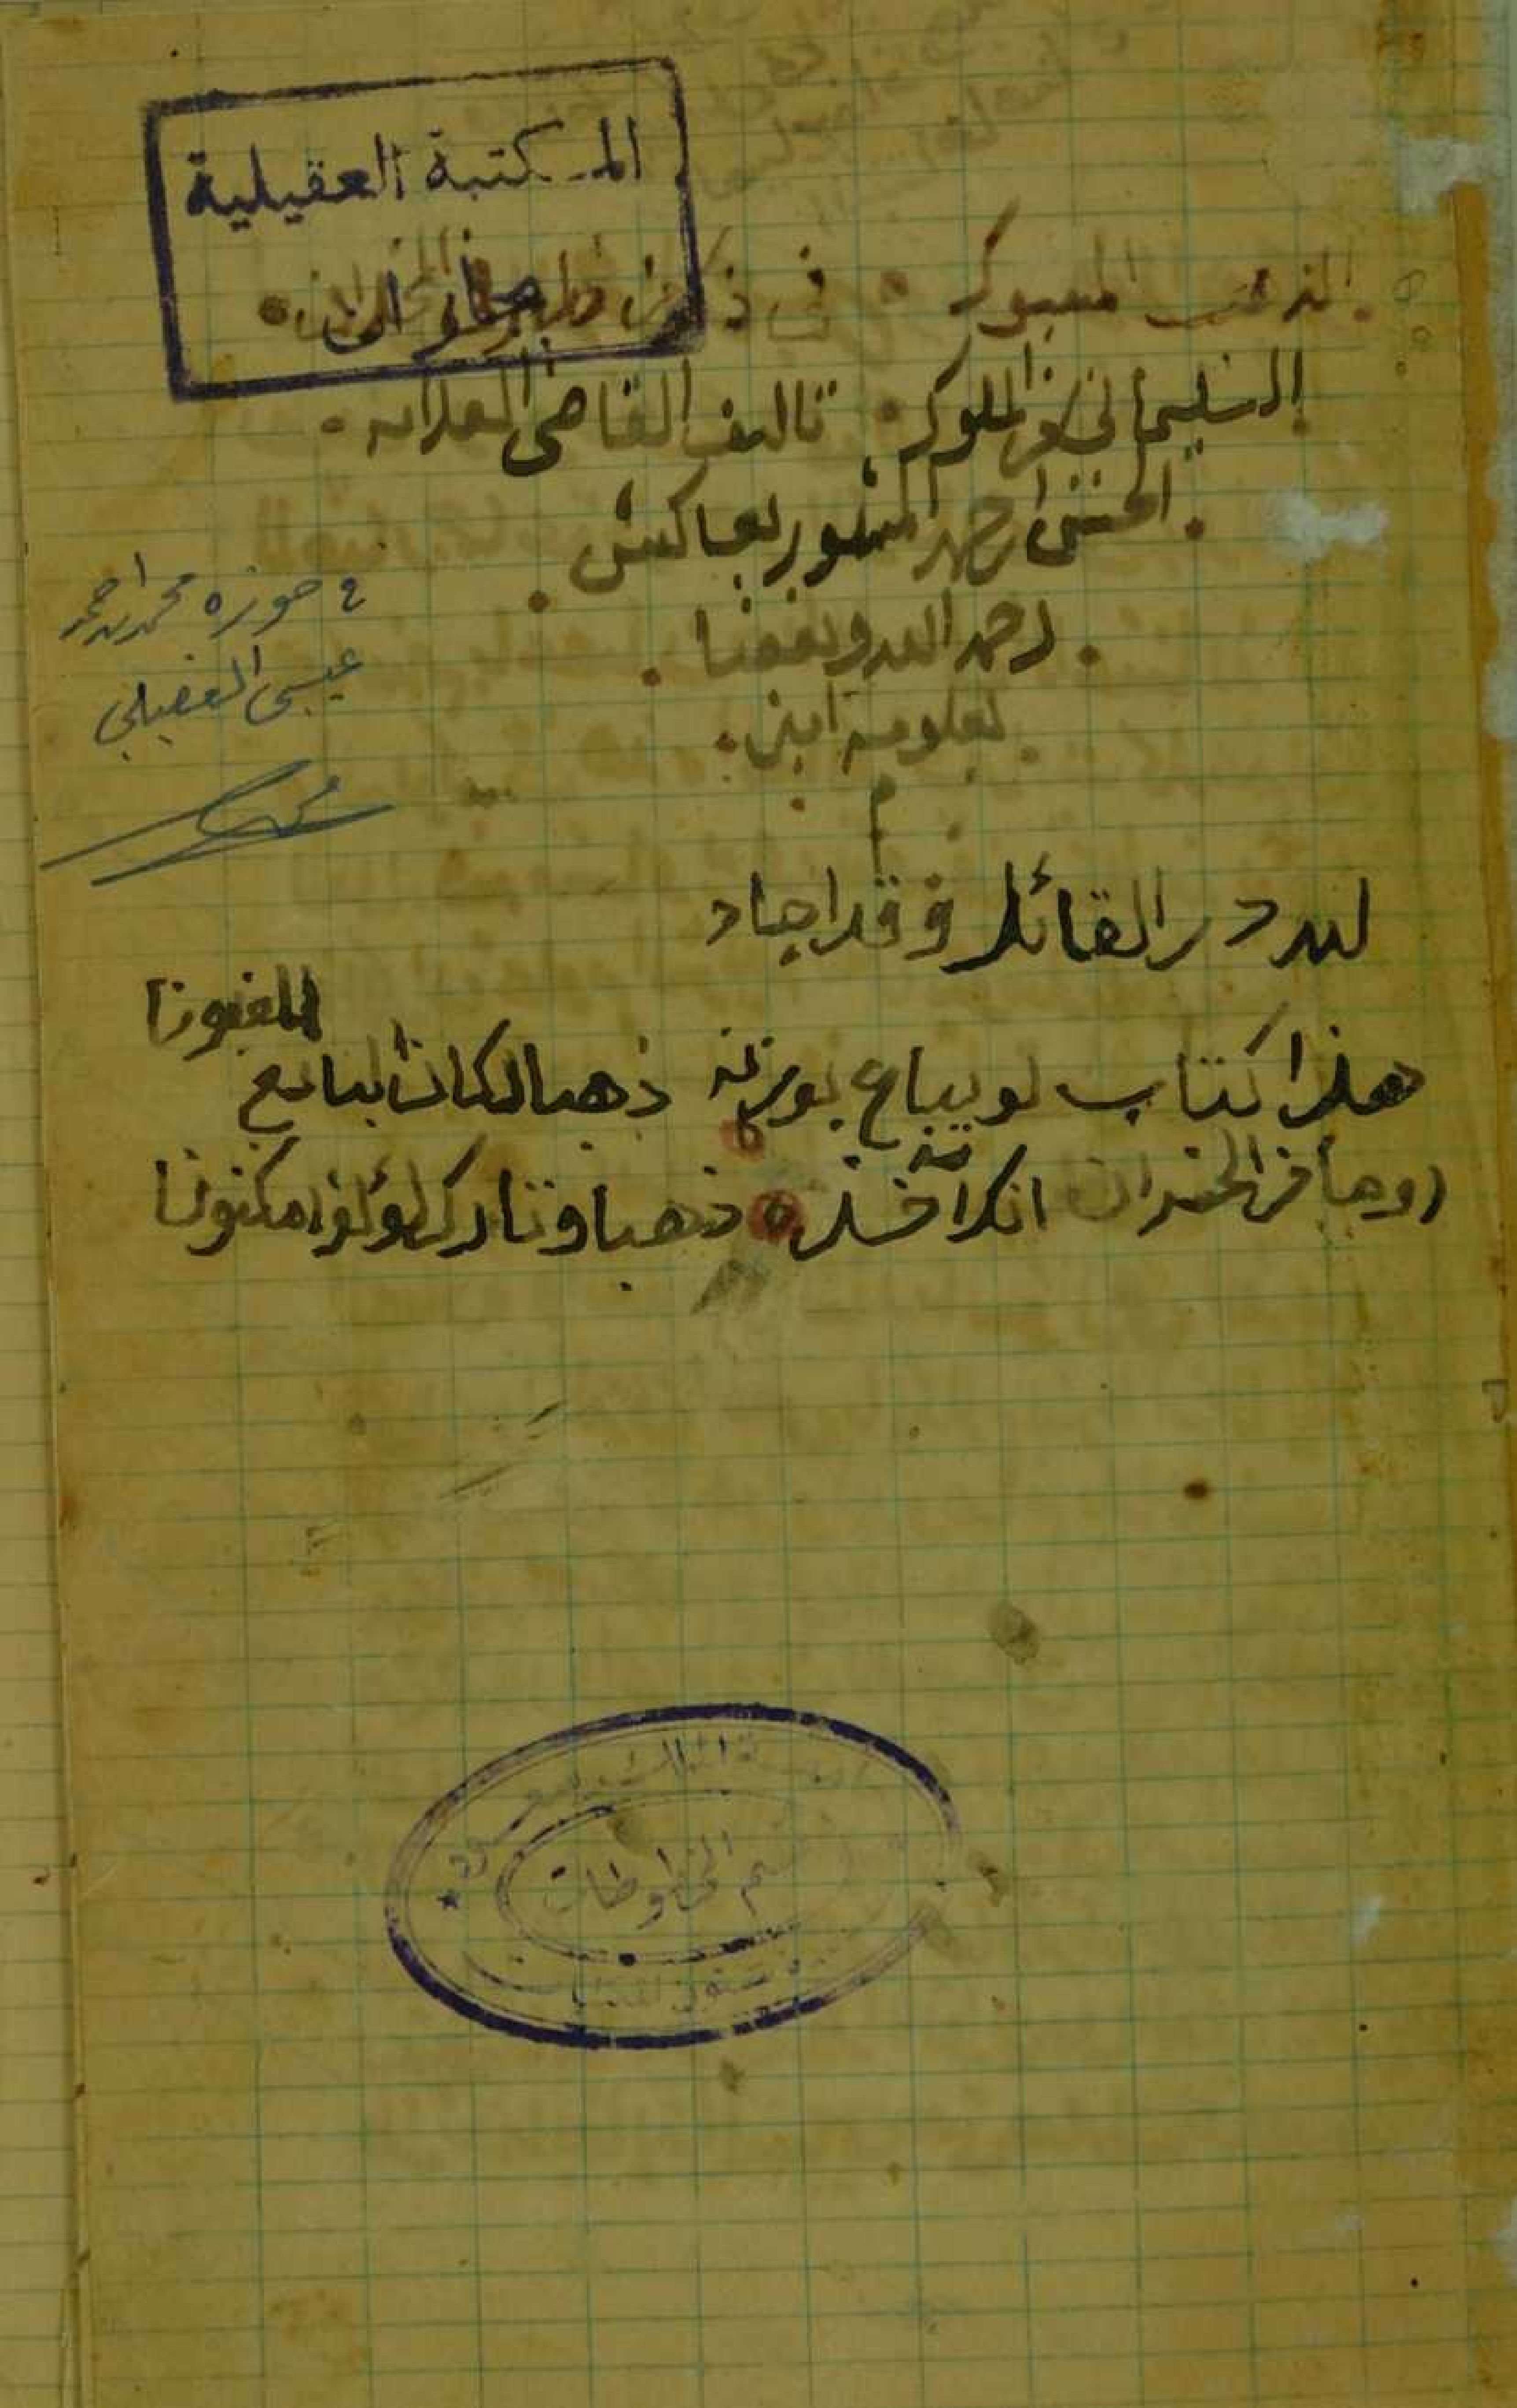 المكتبة العقيلية
جازان
الذهب المسبوك في ذكر من ظهر في المخلاف
السليماني من الملوك تاليف القاضي العلامه
الحسن احمد المشهور بعاكش
رحمه الله ونفعنا
بعلومه امين
م
في حوزه محمد بن احمد
عيسى العقيلي
محمد
لله در القائل وقد اجاد
هذا كتاب لو يباع بوزنه ذهبا لكان البايع
المغبونا
اوما من الخسران انك اخذه ذهبا وتارك لؤلؤا مكنونا
قسم المخطوطات